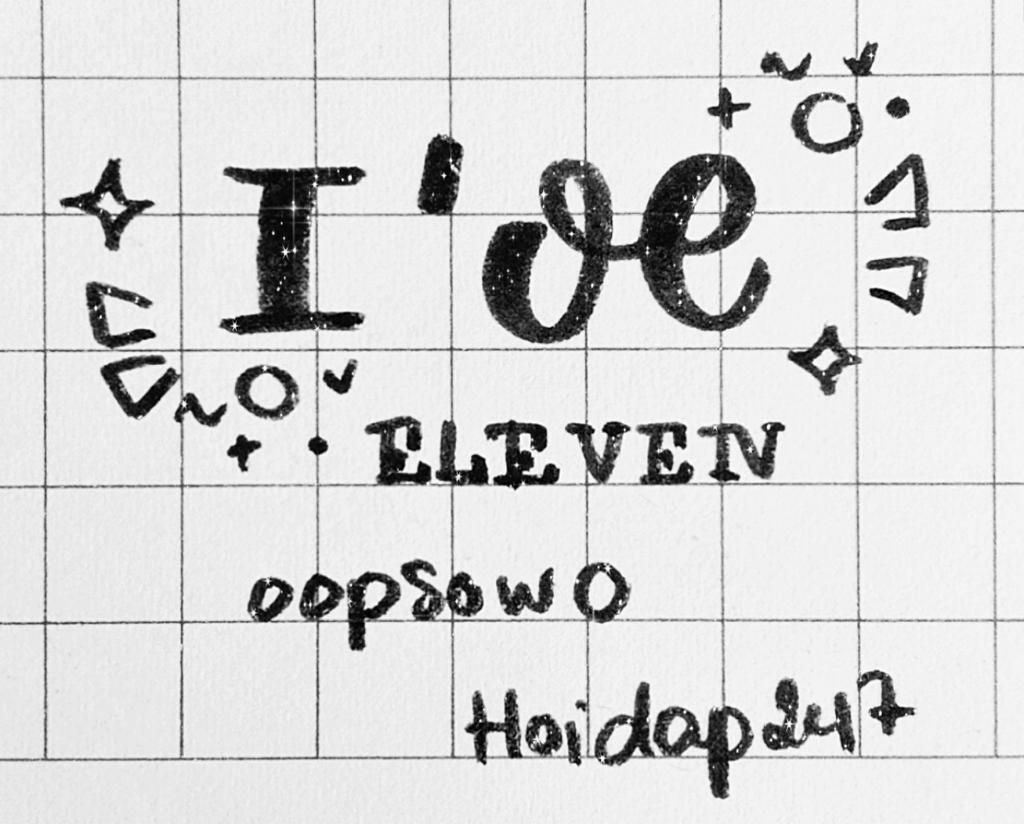 I've
ELEVEN
oopsowo
Hoidap247